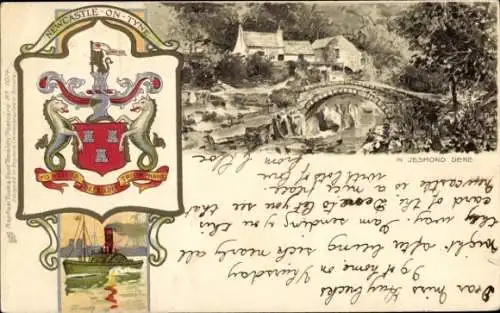 NEWCASTLE-ON-TYNE
IN JESMOND DENE
Dear Miss
I got home on Thursday
night after being sick nearly all
the way. I am sending you this
card of the Dene to let you see that
Newcastle is a nice place.
with lots of love
from